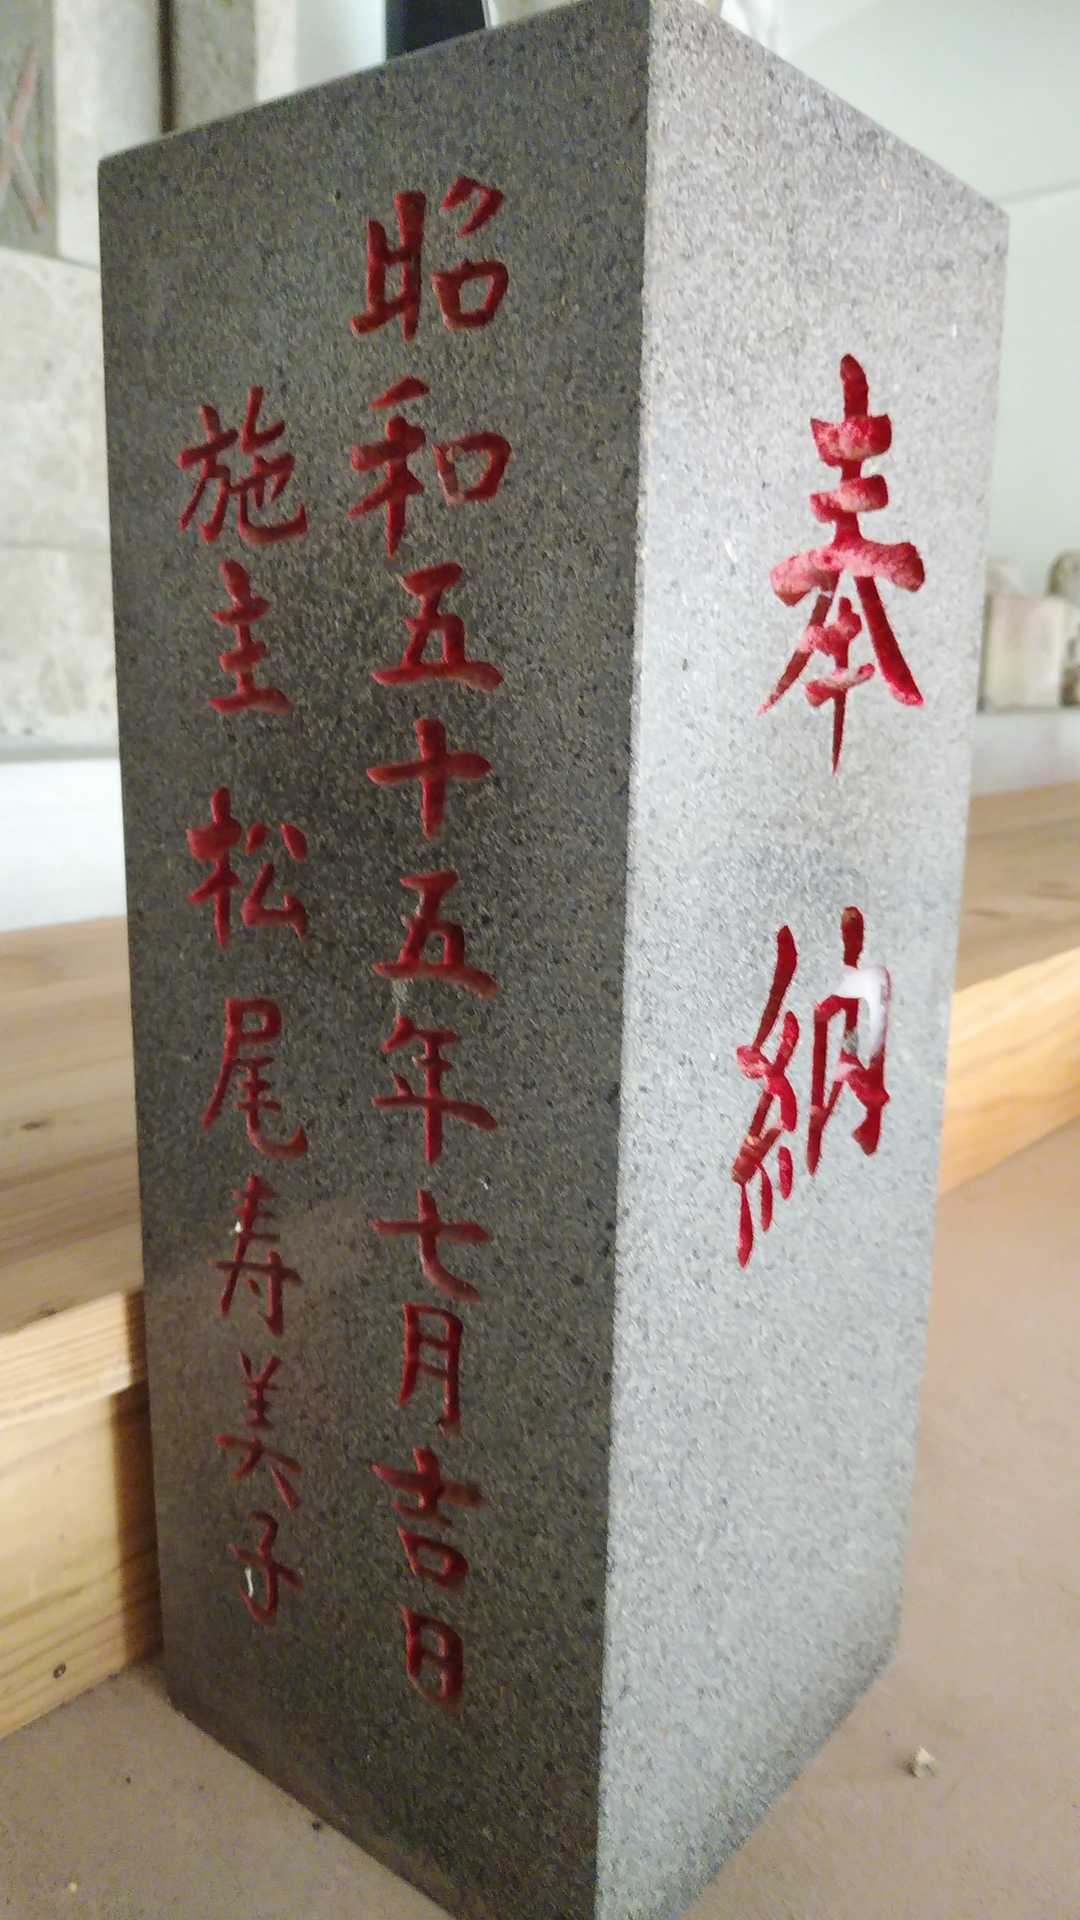 奉納
昭和五十五年七月吉日
施主 松尾寿美子